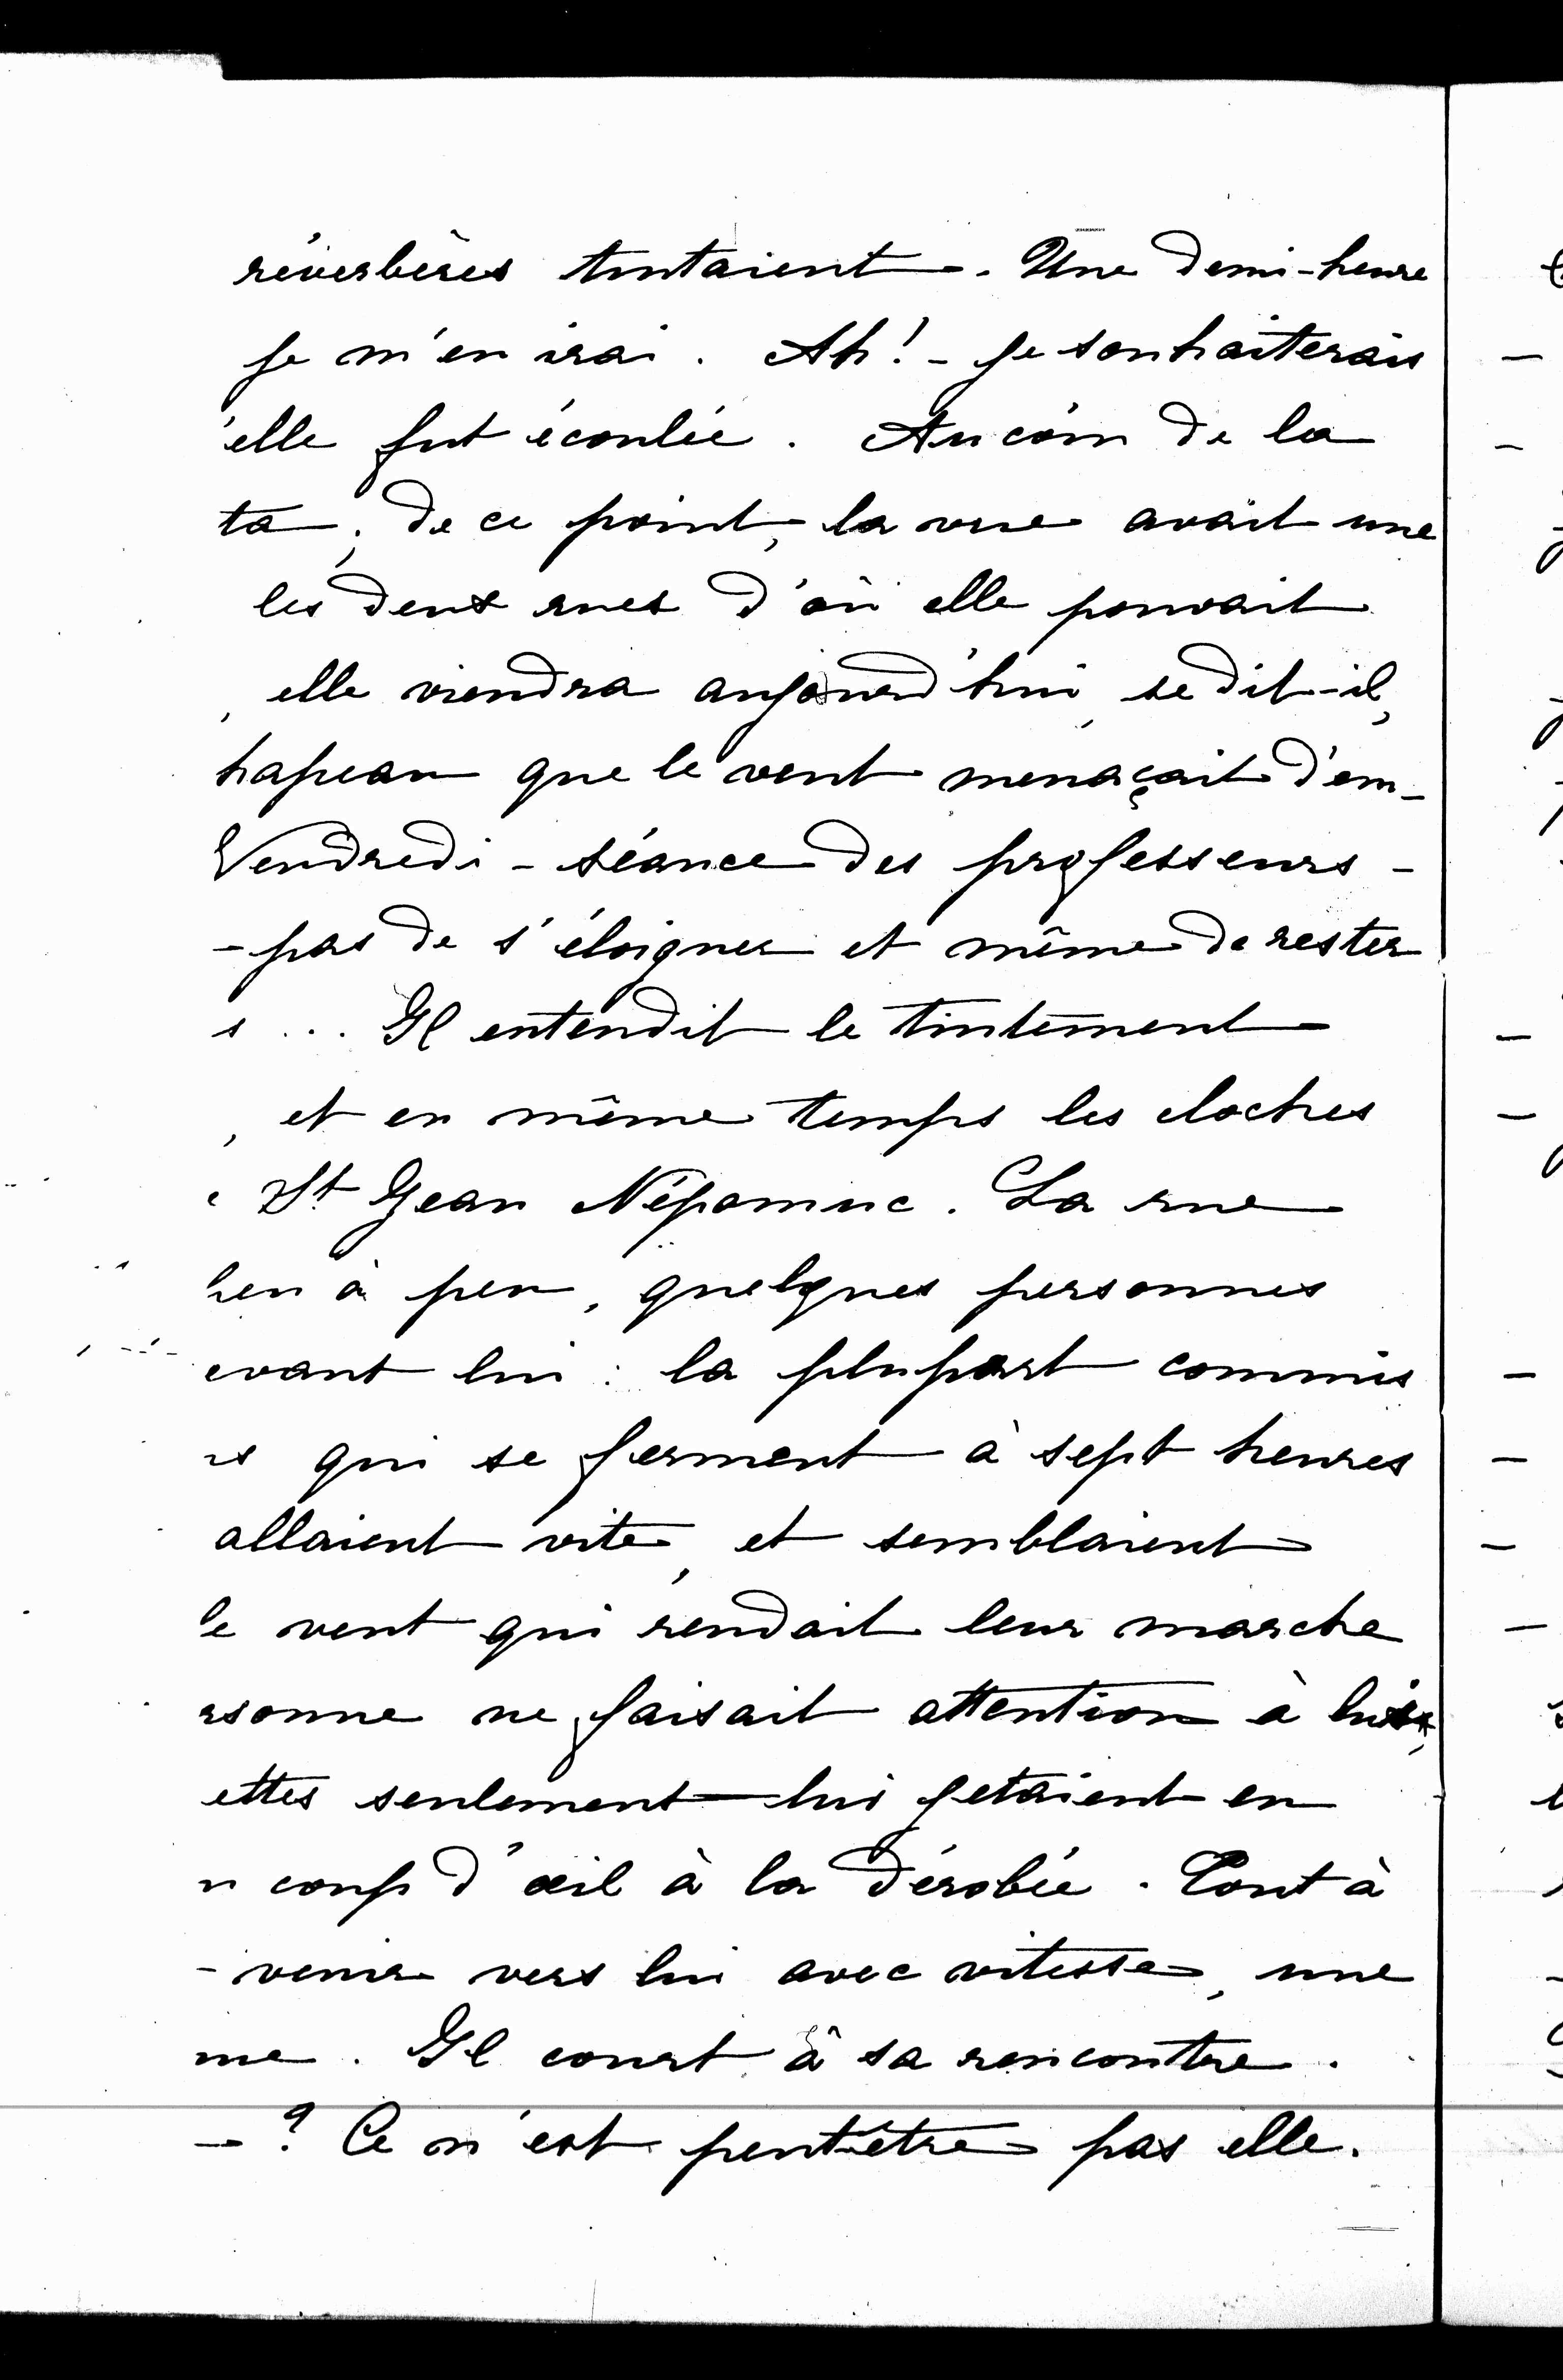 réverbères tintaient. Une demi-heure
je m'en irai. Ah! - je souhaiterais
'elle fut écoulée. Au coin de la
ta; de ce point, la vue avait une
les deux rues d'où elle pouvait
, elle viendra aujourd'hui, se dit-il,
hapeau que le vent menaçait d'em-
Vendredi - séance des professeurs -
- pas de s'éloigner et même de rester
s ... Il entendit le tintement
, et en même temps les cloches
e St Jean Népomuc. La rue
peu à peu, quelques personnes
evant lui : la plupart commis
rs qui se ferment à sept heures
allaient vite, et semblaient
le vent qui rendait leur marche
rsonne ne faisait attention à lui,
ettes seulement lui jetaient en
n coup d'œil à la dérobée. Tout à
- venir vers lui avec vitesse, une
me. Il court à sa rencontre.
- ? Ce n'est peut-être pas elle.